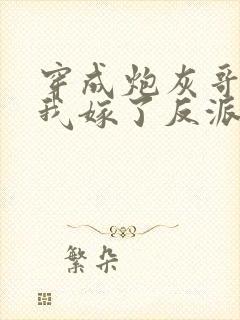 穿成炮灰哥
我嫁了反派
繁朵